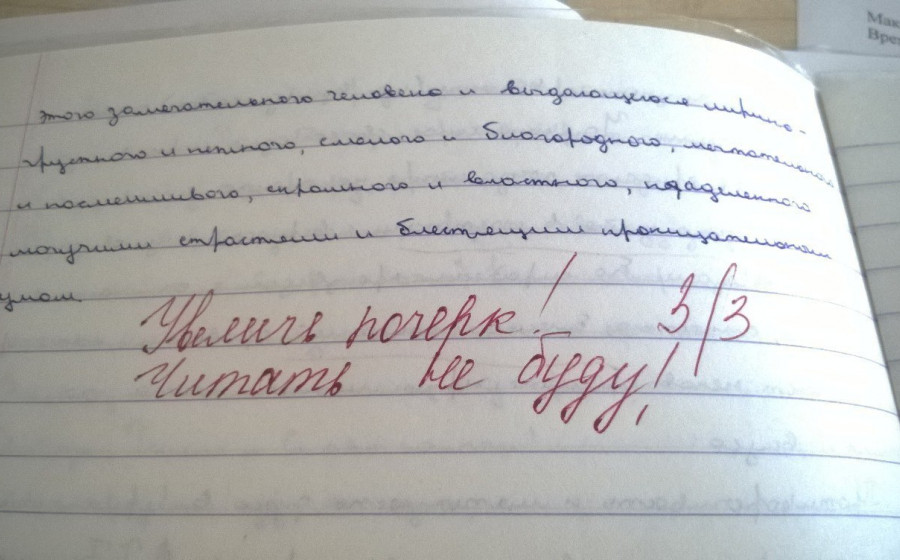 Мак
Вре
этого замечательного человека и выдающегося лирика -
грустного и нежного, смелого и благородного, мечтательного
и насмешливого, скромного и властного, наделенного
могучими страстями и блестящим проницательным
умом.
Увеличь почерк! 3/3
Читать не буду!